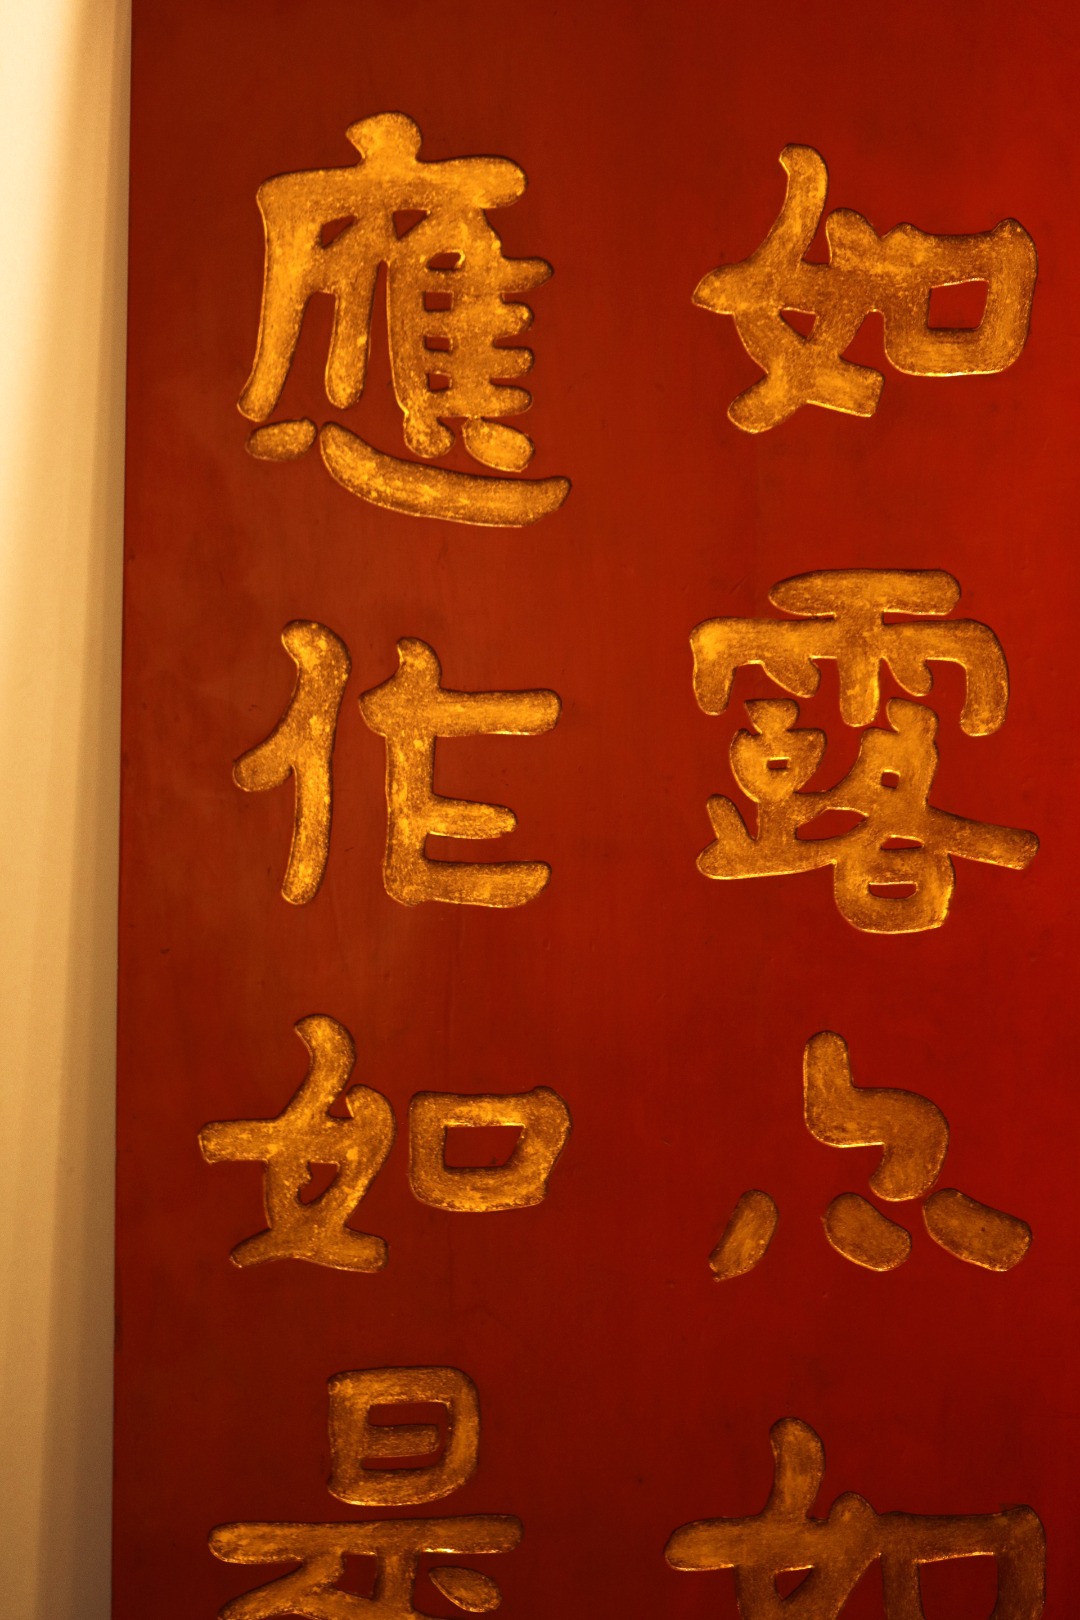 如露亦如
應作如是